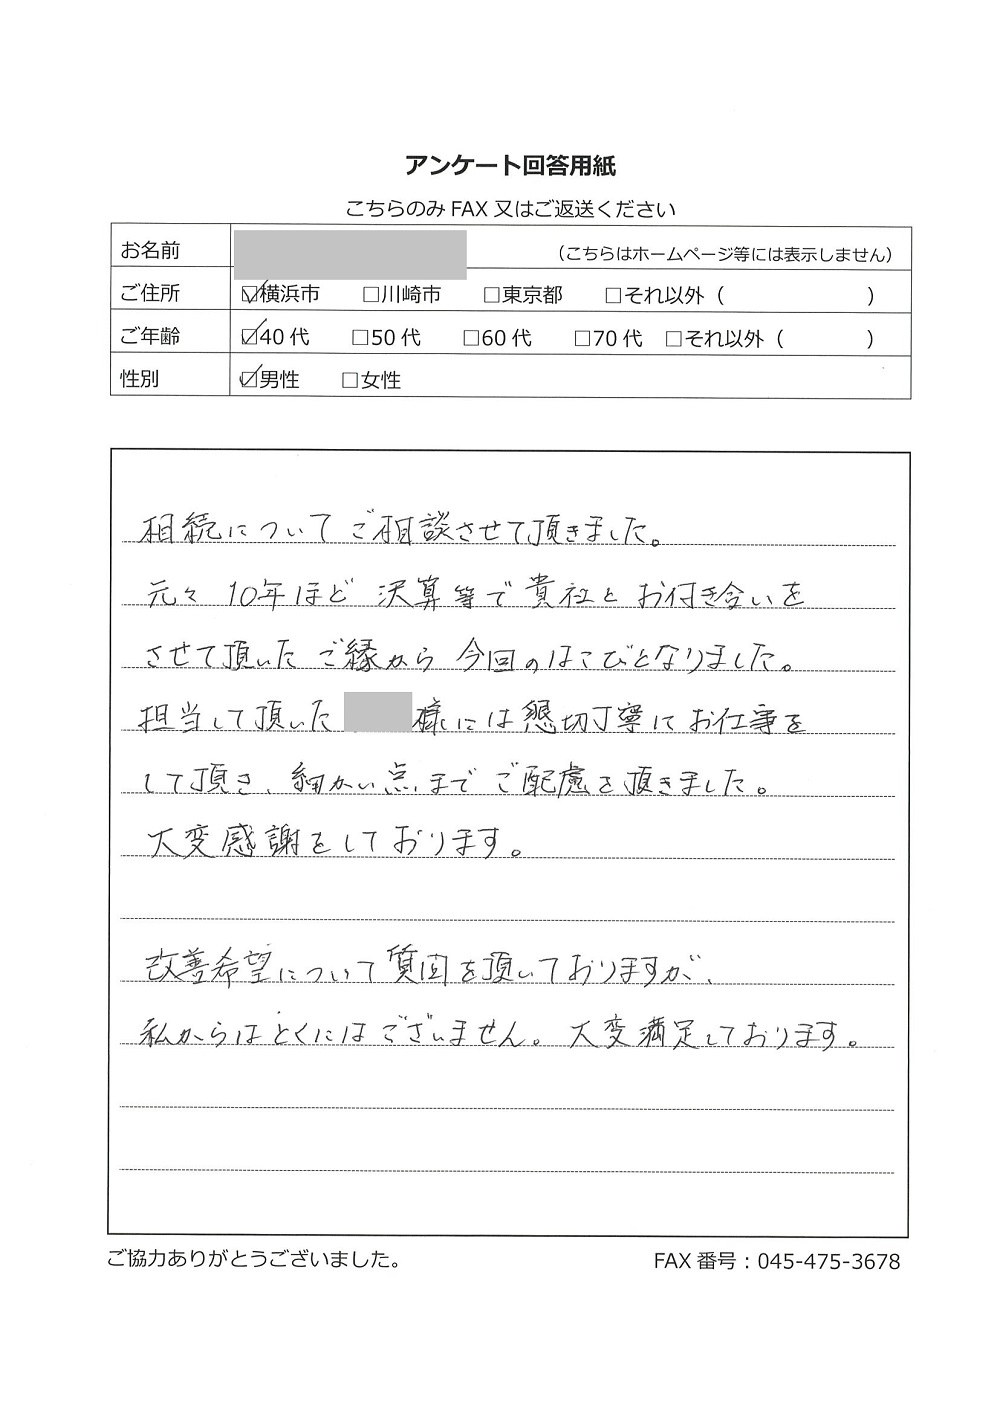 アンケート回答用紙
こちらのみ FAX 又はご返送ください
お名前 （こちらはホームページ等には表示しません）
ご住所 ☑横浜市 □川崎市 □東京都 □それ以外（ ）
ご年齢 ☑40 代 □50 代 □60 代 □70 代 □それ以外（ ）
性別 ☑男性 □女性
相続について ご相談させて頂きました。
元々 10年ほど 決算等で貴社と お付き合いを
させて頂いた ご縁から 今回のはこびとなりました。
担当して頂いた 様には懇切丁寧にお仕事を
して頂き、細かい点まで ご配慮を頂きました。
大変感謝をしております。
改善希望について質問を頂いておりますが、
私からはとくにはございません。大変満足しております。
ご協力ありがとうございました。 FAX 番号：045-475-3678